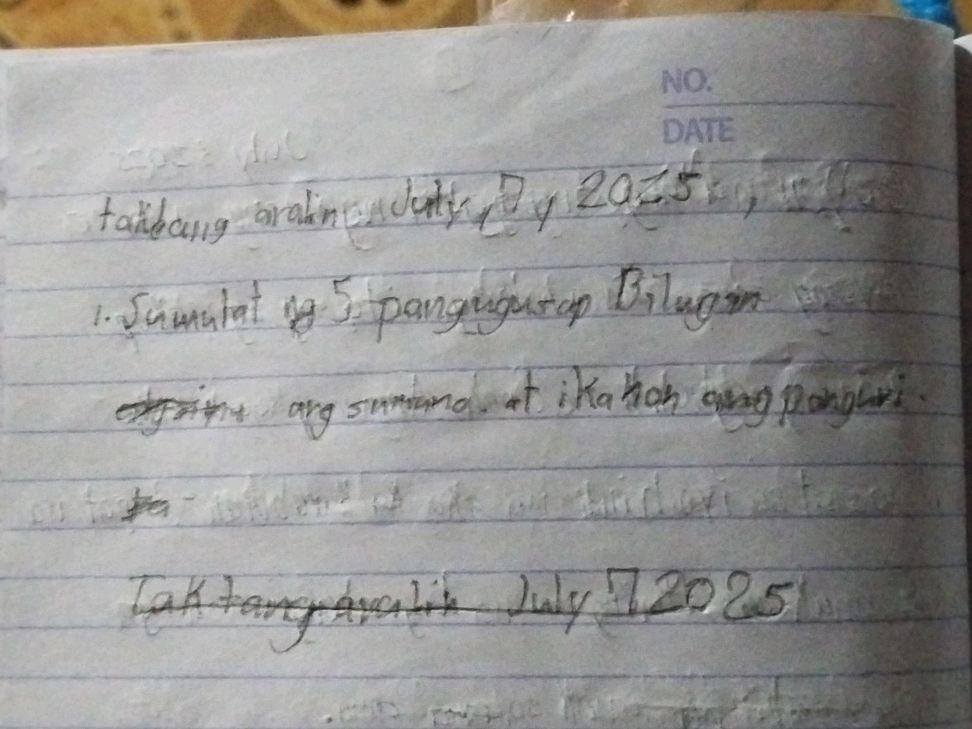 NO.
DATE
takdang aralin July, 7, 2025,
1. Sumulat ng 5 pangugusap Bilugan
ang simuno. at ikahon ang panguri.
Taktang aralin July 7 2025